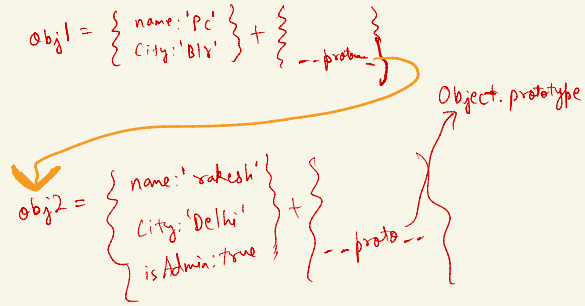 obj1 = { name:'Pc' + {
City:'Blr' }
--proto-- }
Object.prototype
obj2 = { name:'rakesh' } + {
City:'Delhi'
isAdmin:true
--proto-- }